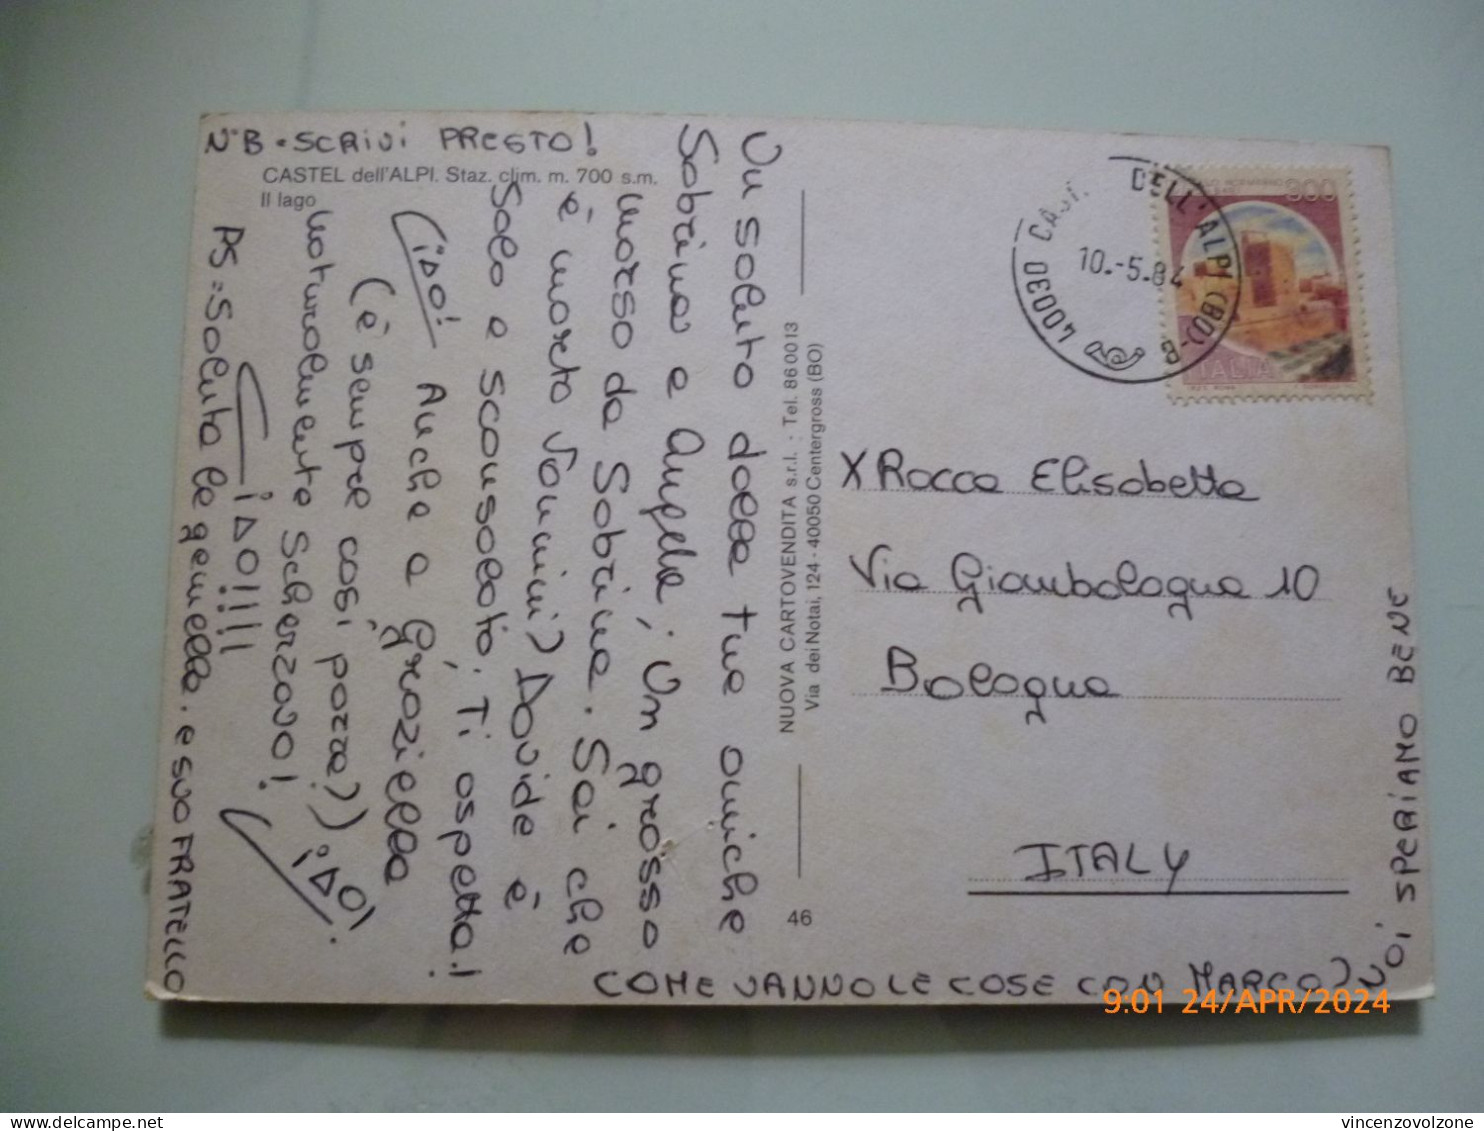 N.B. = SCRIVI PRESTO!
CASTEL dell'ALPI. Staz. clim. m. 700 s.m.
Il lago
Un saluto dalle tue amiche
Sabrina e Angela; Un grosso
morso da Sabrina. Sai che
è morto Vannini? Davide è
solo e sconsolato. Ti aspetta!
(¡DO! Anche a Graziella
(è sempre così, pazza?) ¡DO!
naturalmente Scherzavo!
¡DO!!!!
PS = Saluta le gemelle. e SUO FRATELLO
COME VANNO LE COSE CON MARCO? NOI SPERIAMO BENE
NUOVA CARTOVENDITA s.r.l. - Tel. 860013
Via dei Notai, 124 - 40050 Centergross (BO)
46
40030 CAST. DELL'ALPI (BO) - B
10.-5.84
300
ITALIA
X Rocca Elisabetta
Via Giambologna 10
Bologna
ITALY
9:01 24/APR/2024
delcampe.net
vincenzovolzone